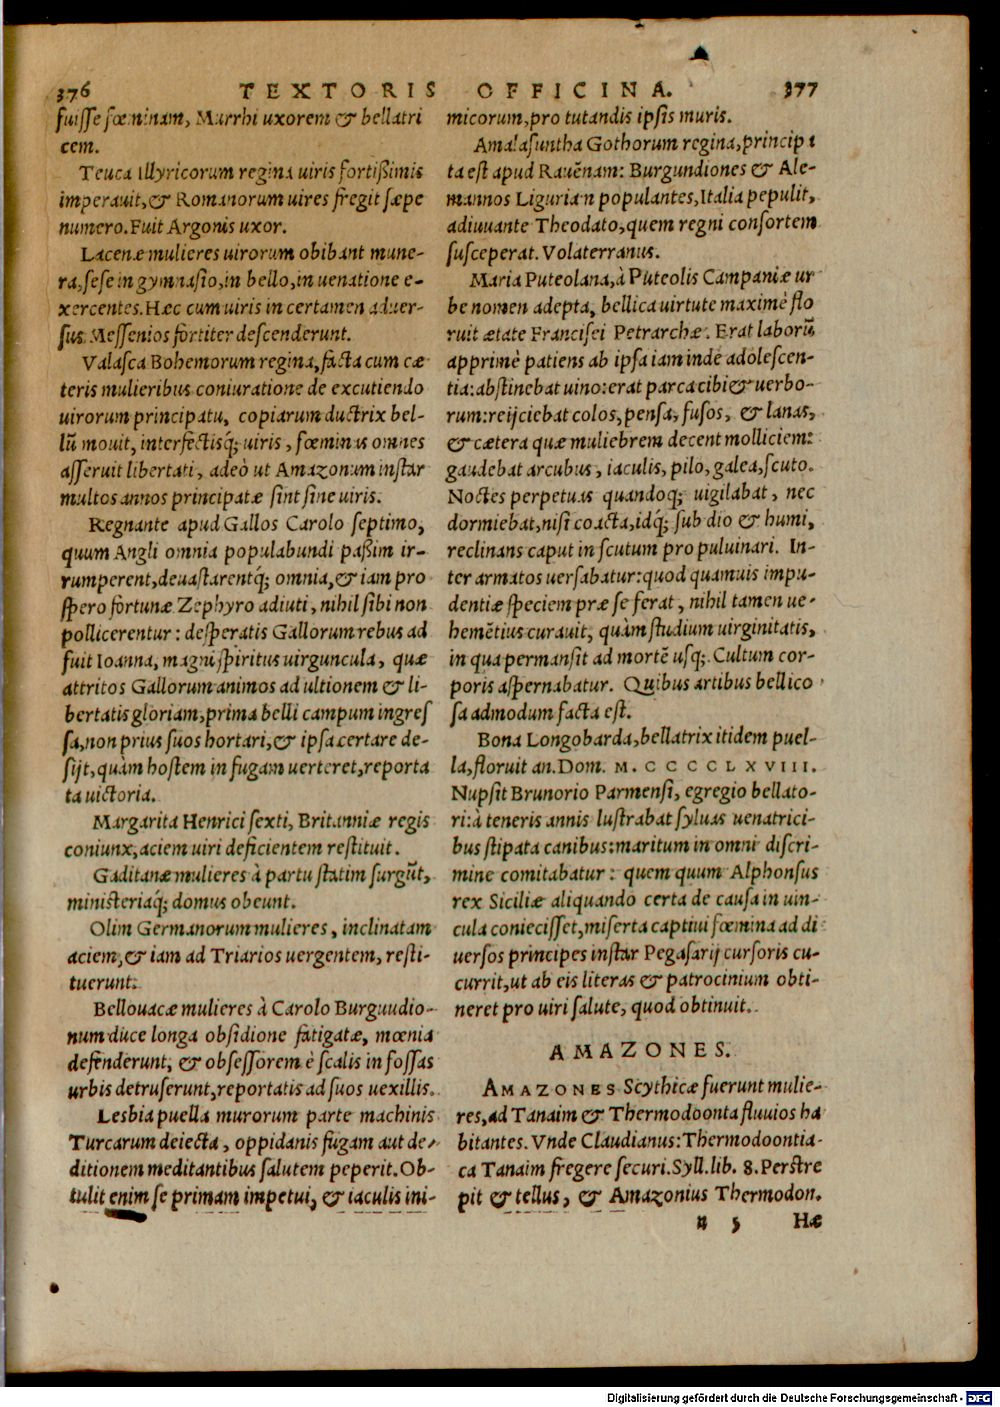 376 TEXTORIS OFFICINA. 377
fuisse fœminam, Marrhi uxorem & bellatri
cem.
Teuca Illyricorum regina uiris fortißimis
imperauit, & Romanorum uires fregit sæpe
numero. Fuit Argonis uxor.
Lacenæ mulieres uirorum obibant mune-
ra, sese in gymnasio, in bello, in uenatione e-
xercentes. Hæc cum uiris in certamen aduer-
sus Messenios fortiter descenderunt.
Valasca Bohemorum regina, facta cum cæ
teris mulieribus coniuratione de excutiendo
uirorum principatu, copiarum ductrix bel-
lũ mouit, interfectisq; uiris, fœminas omnes
asseruit libertati, adeò ut Amazonum instar
multos annos principatæ sint sine uiris.
Regnante apud Gallos Carolo septimo,
quum Angli omnia populabundi paßim ir-
rumperent, deuastarentq́; omnia, & iam pro
spero fortunæ Zephyro adiuti, nihil sibi non
pollicerentur: desperatis Gallorum rebus ad
fuit Ioanna, magni spiritus uirguncula, quæ
attritos Gallorum animos ad ultionem & li-
bertatis gloriam, prima belli campum ingres
sa, non prius suos hortari, & ipsa certare de-
sijt, quàm hostem in fugam uerteret, reporta
ta uictoria.
Margarita Henrici sexti, Britanniæ regis
coniunx, aciem uiri deficientem restituit.
Gaditanæ mulieres à partu statim surgũt,
ministeriaq́; domus obeunt.
Olim Germanorum mulieres, inclinatam
aciem, & iam ad Triarios uergentem, resti-
tuerunt.
Bellouacæ mulieres à Carolo Burguudio-
num duce longa obsidione fatigatæ, mœnia
defenderunt, & obsessorem è scalis in fossas
urbis detruserunt, reportatis ad suos uexillis.
Lesbia puella murorum parte machinis
Turcarum deiecta, oppidanis fugam aut de-
ditionem meditantibus salutem peperit. Ob-
tulit enim se primam impetui, & iaculis ini-
micorum, pro tutandis ipsis muris.
Amalasuntha Gothorum regina, principa
ta est apud Rauẽnam: Burgundiones & Ale-
mannos Liguriam populantes, Italia pepulit,
adiuuante Theodato, quem regni consortem
susceperat. Volaterranus.
Maria Puteolana, à Puteolis Campaniæ ur
be nomen adepta, bellica uirtute maximè flo
ruit ætate Francisci Petrarchæ. Erat laborũ
apprimè patiens ab ipsa iam inde adolescen-
tia: abstinebat uino: erat parca cibi & uerbo-
rum: reijciebat colos, pensa, fusos, & lanas,
& cætera quæ muliebrem decent molliciem:
gaudebat arcubus, iaculis, pilo, galea, scuto.
Noctes perpetuas quandoq; uigilabat, nec
dormiebat, nisi coacta, idq́; sub dio & humi,
reclinans caput in scutum pro puluinari. In-
ter armatos uersabatur: quod quamuis impu-
dentiæ speciem præ se ferat, nihil tamen ue-
hemẽtius curauit, quàm studium uirginitatis,
in qua permansit ad mortẽ usq;. Cultum cor-
poris aspernabatur. Quibus artibus bellico
sa admodum facta est.
Bona Longobarda, bellatrix itidem puel-
la, floruit an. Dom. M. CCCCLXVIII.
Nupsit Brunorio Parmensi, egregio bellato-
ri: à teneris annis lustrabat syluas uenatrici-
bus stipata canibus: maritum in omni discri-
mine comitabatur: quem quum Alphonsus
rex Siciliæ aliquando certa de causa in uin-
cula coniecisset, miserta captiui fœmina ad di
uersos principes instar Pegasarij cursoris cu-
currit, ut ab eis literas & patrocinium obti-
neret pro uiri salute, quod obtinuit.
AMAZONES.
AMAZONES Scythicæ fuerunt mulie-
res, ad Tanaim & Thermodoonta fluuios ha
bitantes. Vnde Claudianus: Thermodoontia-
ca Tanaim fregere securi. Syll. lib. 8. Perstre
pit & tellus, & Amazonius Thermodon.
n 5 Hæ
Digitalisierung gefördert durch die Deutsche Forschungsgemeinschaft - DFG